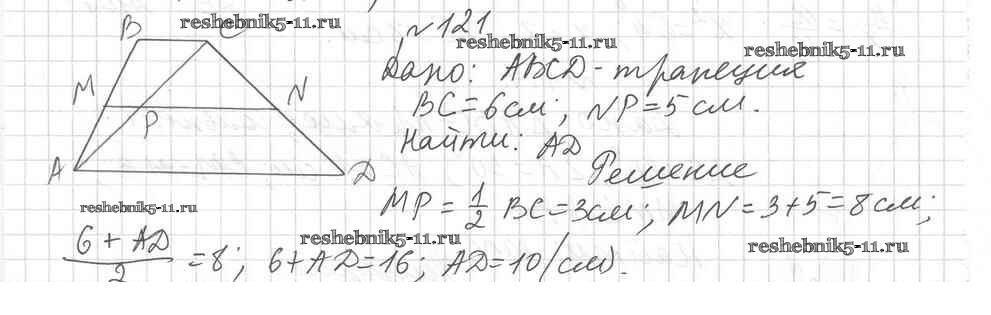 reshebnik5-11.ru
B C
№121
reshebnik5-11.ru
reshebnik5-11.ru
Дано: ABCD - трапеция
M N
BC = 6 см; NP = 5 см.
P
Найти: AD
A D
Решение
reshebnik5-11.ru
MP = 1/2 BC = 3 см; MN = 3 + 5 = 8 см;
reshebnik5-11.ru
reshebnik5-11.ru
(6 + AD)/2 = 8; 6 + AD = 16; AD = 10 (см).